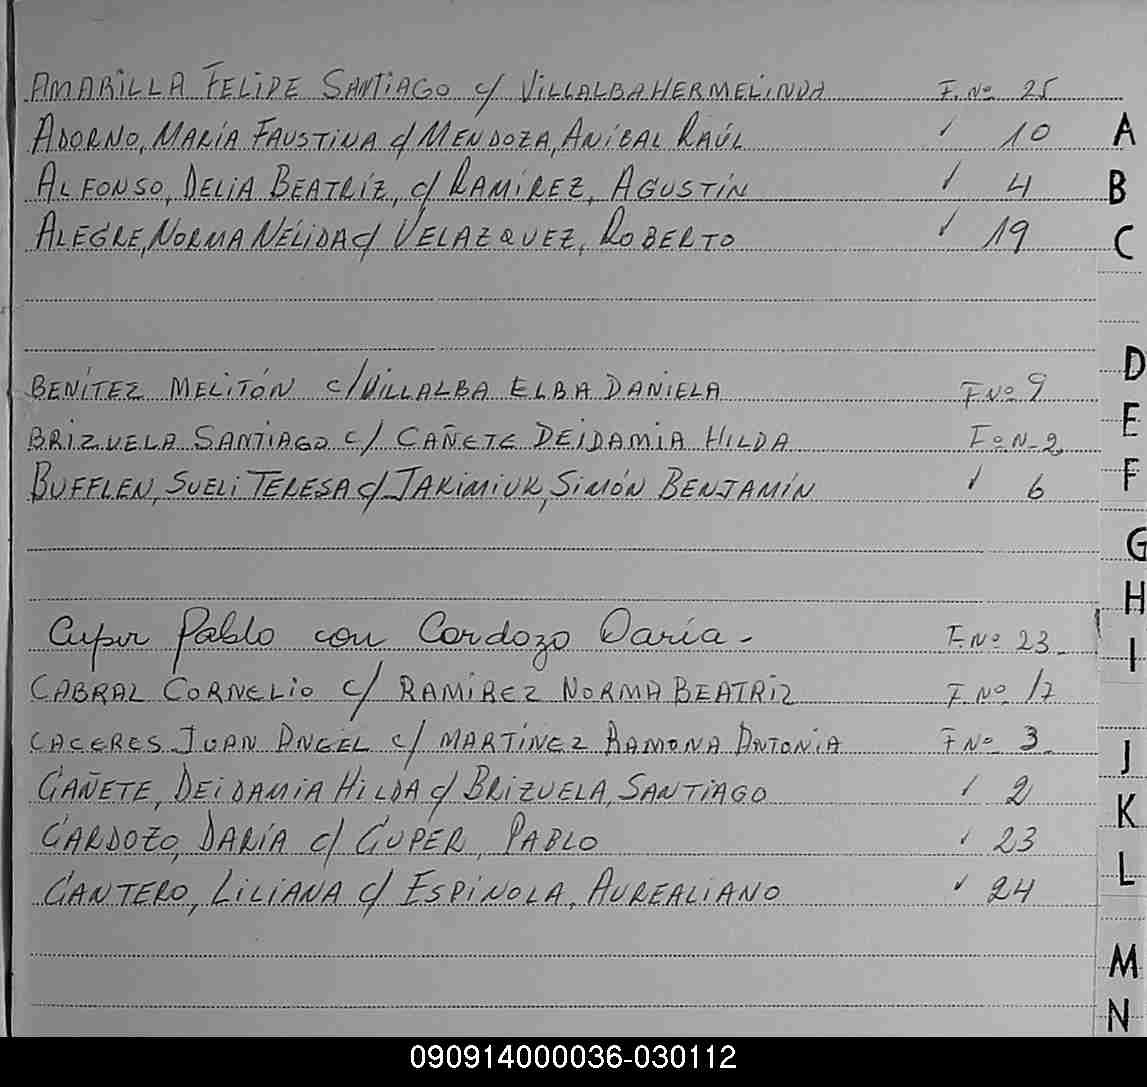 AMARILLA FELIPE SANTIAGO c/ VILLALBA HERMELINDA F. Nº 25
ADORNO, MARÍA FAUSTINA c/ MENDOZA, ANÍBAL RAÚL ✓ 10
ALFONSO, DELIA BEATRÍZ, c/ RAMÍREZ, AGUSTÍN ✓ 4
ALEGRE, NORMA NÉLIDA c/ VELAZQUEZ, ROBERTO ✓ 19
BENÍTEZ MELITÓN c/ VILLALBA ELBA DANIELA F Nº 9
BRIZUELA SANTIAGO c/ CAÑETE DEIDAMIA HILDA Fº N-2
BUFFLEN, SUELI TERESA c/ JAKIMIUK, SIMÓN BENJAMÍN ✓ 6
Cuper Pablo con Cardozo Daría. F. Nº 23
CABRAL CORNELIO c/ RAMÍREZ NORMA BEATRIZ F. Nº 17
CACERES JUAN ANGEL c/ MARTÍNEZ RAMONA ANTONIA F Nº 3
CAÑETE, DEIDAMIA HILDA c/ BRIZUELA, SANTIAGO ✓ 2
CARDOZO, DARÍA c/ CUPER, PABLO ✓ 23
CANTERO, LILIANA c/ ESPÍNOLA, AUREALIANO ✓ 24
A
B
C
D
E
F
G
H
I
J
K
L
M
N
090914000036-030112